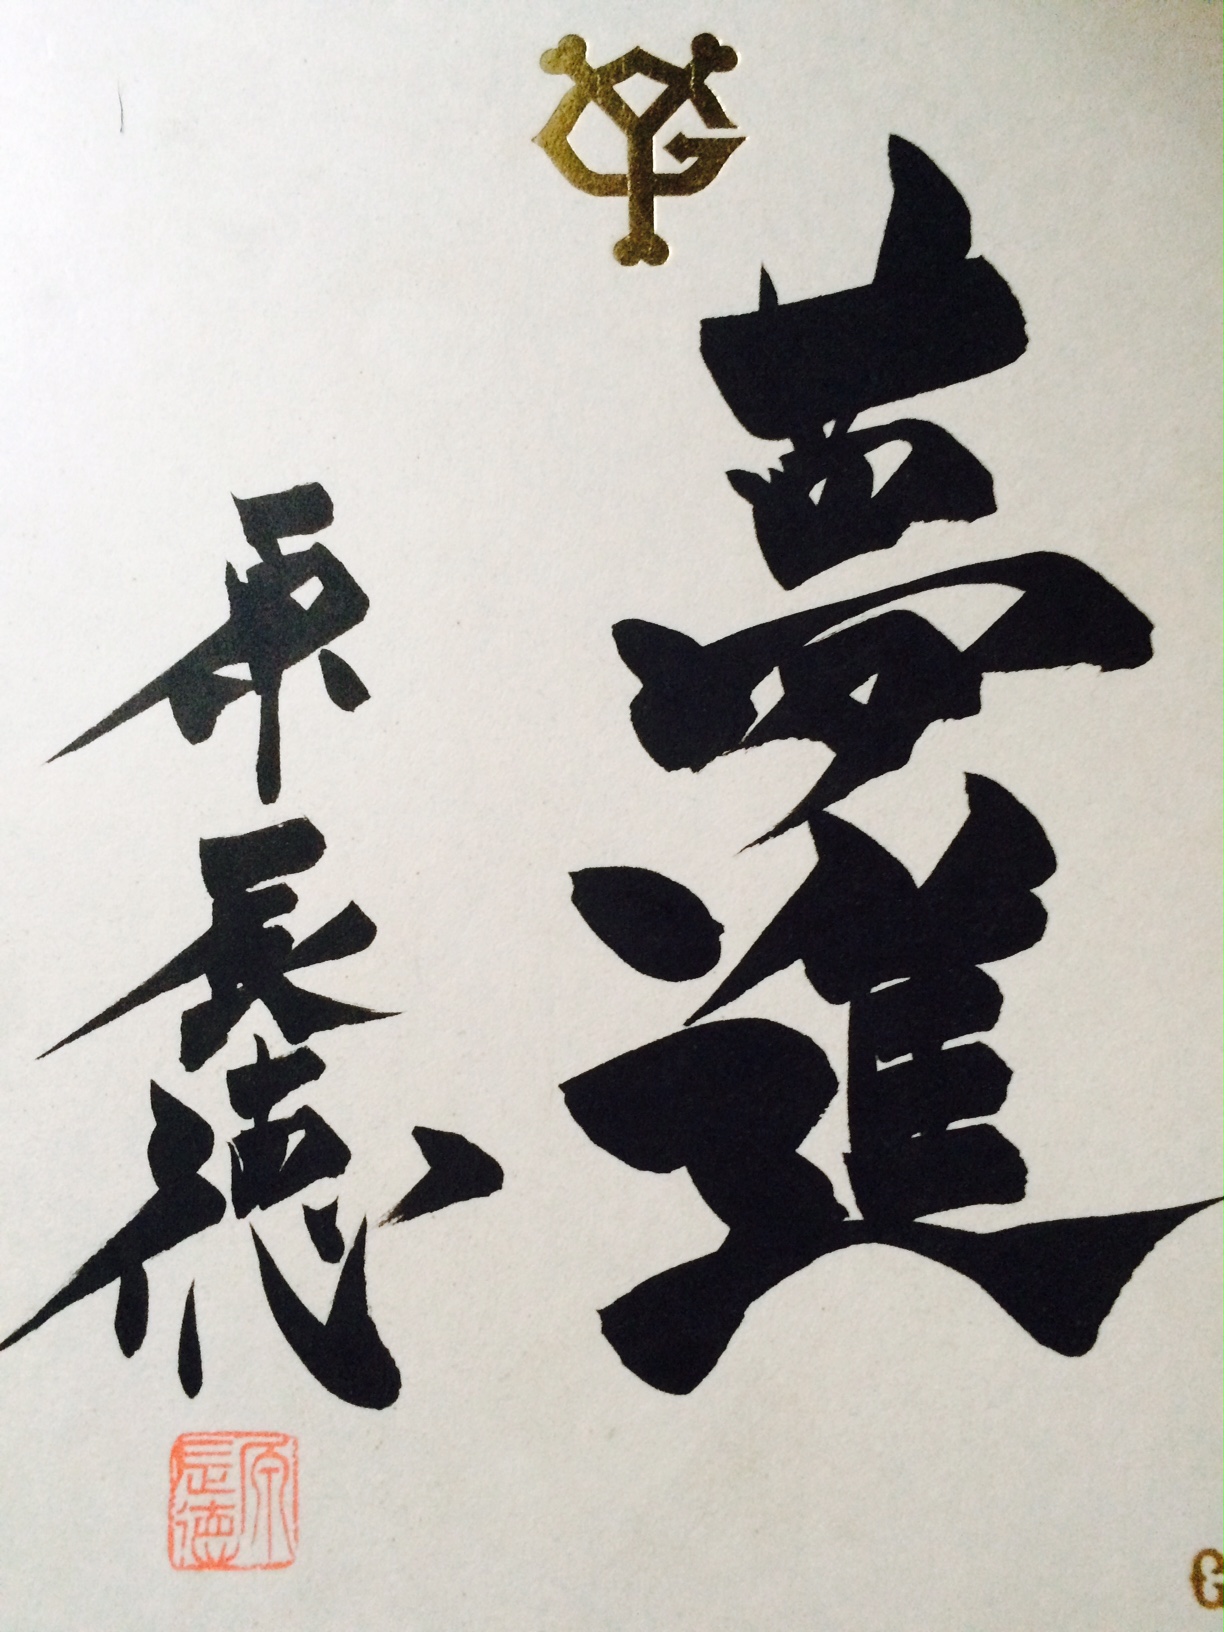 夢進
原辰徳
原辰徳
YG
G